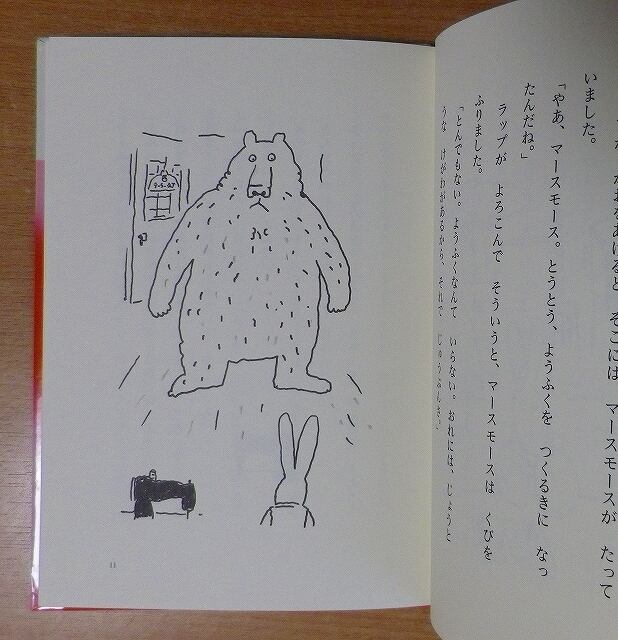 かおをあげると そこには マースモースが たって
いました。
「やあ、マースモース。とうとう、ようふくを つくるきに なっ
たんだね。」
ラップが よろこんで そういうと、マースモースは くびを
ふりました。
「とんでもない。ようふくなんて いらない。おれには、じょうと
うな けがわがあるから、それで じゅうぶんさ。」
11